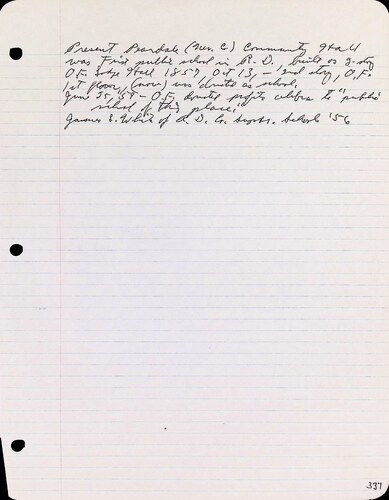 Present (Tuo. C.) Community Hall
was First public school in R. D., built as 2-story
O.F. Lodge Hall 1857, Oct 13, - 2nd story, O.F.
1st floor, (now) was donated as school.
June 25, 57 - O.F. donated profits to "public
school of this place."
James S. White of R. D. Co. Supt. Schools '56
337